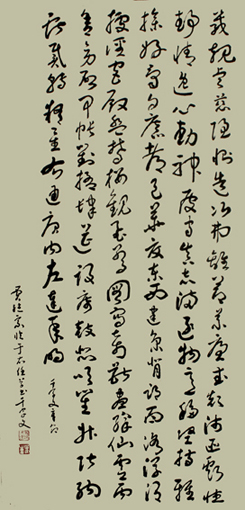 箴規仁慈隱惻造次弗離節義廉退顛沛匪虧性
靜情逸心動神疲守真志滿逐物意移堅持雅
操好爵自縻都邑華夏東西二京背邙面洛浮渭
據涇宮殿盤鬱樓觀飛驚圖寫禽獸畫彩仙靈丙
舍傍啟甲帳對楹肆筵設席鼓瑟吹笙升階納
陛弁轉疑星右通廣內左達承明
于右任